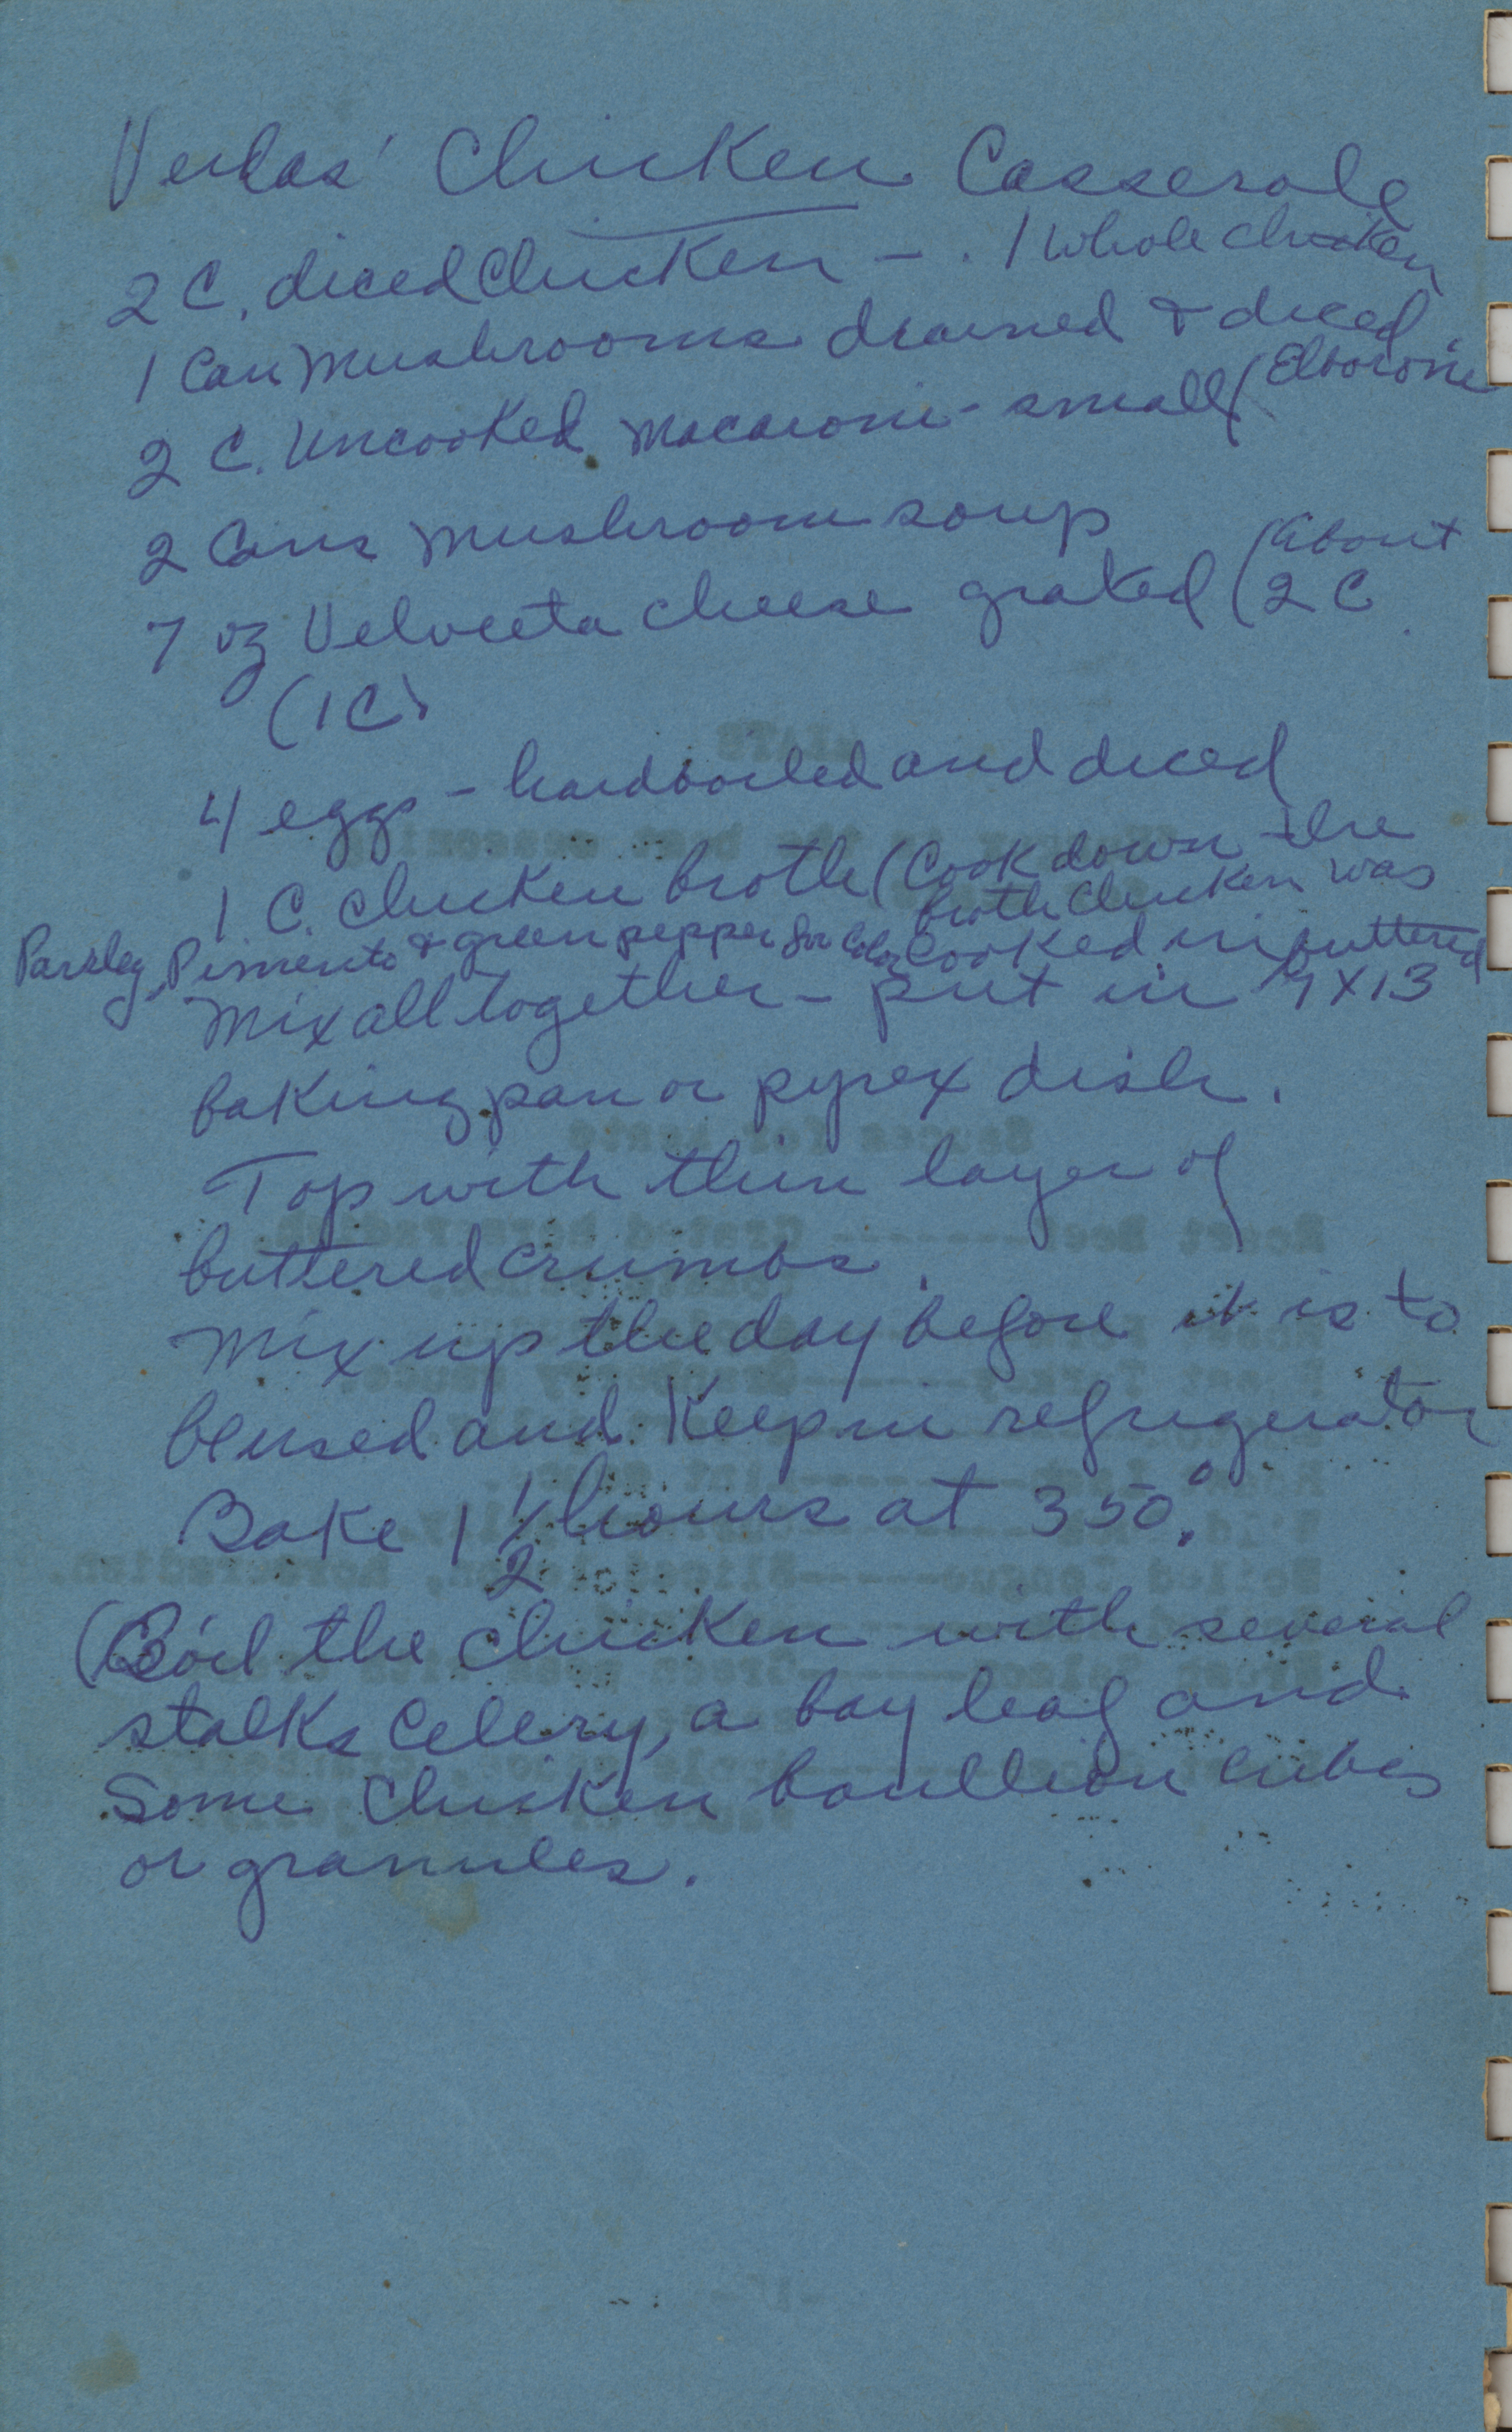 Verlas' Chicken Casserole
2 C. diced Chicken - . 1 whole chicken
1 Can Mushrooms drained & diced
2 C. Uncooked Macaroni - small (Elboroni
2 Cans Mushroom soup
7 oz Velveeta cheese grated (about 2 C
(1 C)
4 eggs - hardboiled and diced
1 C. Chicken broth (Cook down the
broth Chicken was
cooked in
Parsley, Pimento & green pepper for Color
Mix all together - put in buttered 9 X 13
baking pan or pyrex dish.
Top with thin layer of
buttered crumbs.
Mix up the day before it is to
be used and Keep in refrigerator
Bake 1 1/2 hours at 350°.
(Boil the Chicken with several
stalks Celery, a bay leaf and
Some Chicken boullion cubes
or granules.